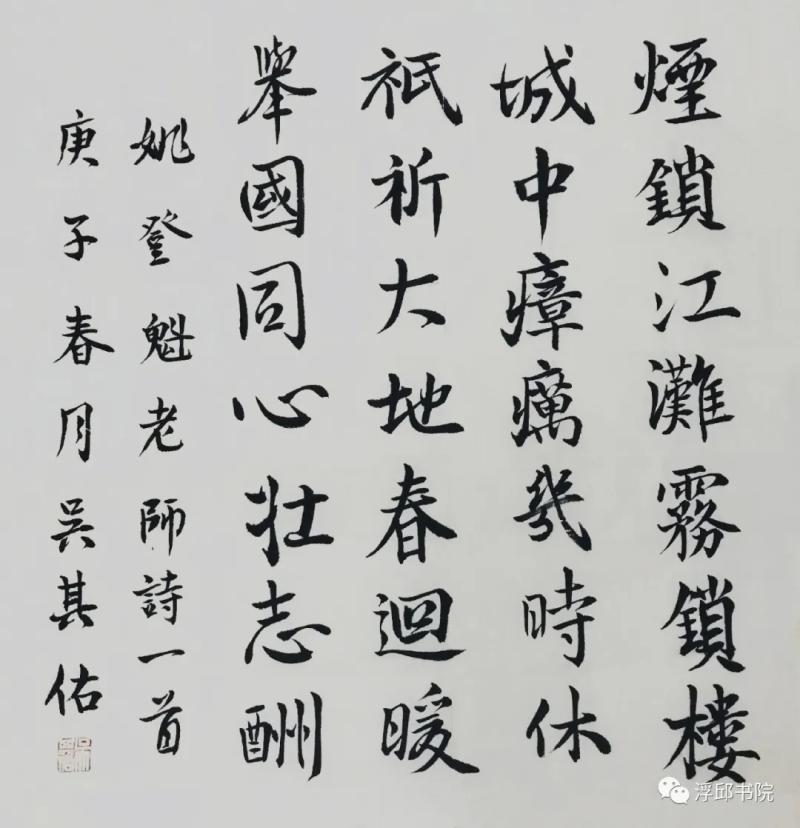 煙鎖江灘霧鎖樓
城中瘴癘幾時休
祇祈大地春迴暖
舉國同心壯志酬
姚登魁老師詩一首
庚子春月吳其佑
浮邱书院